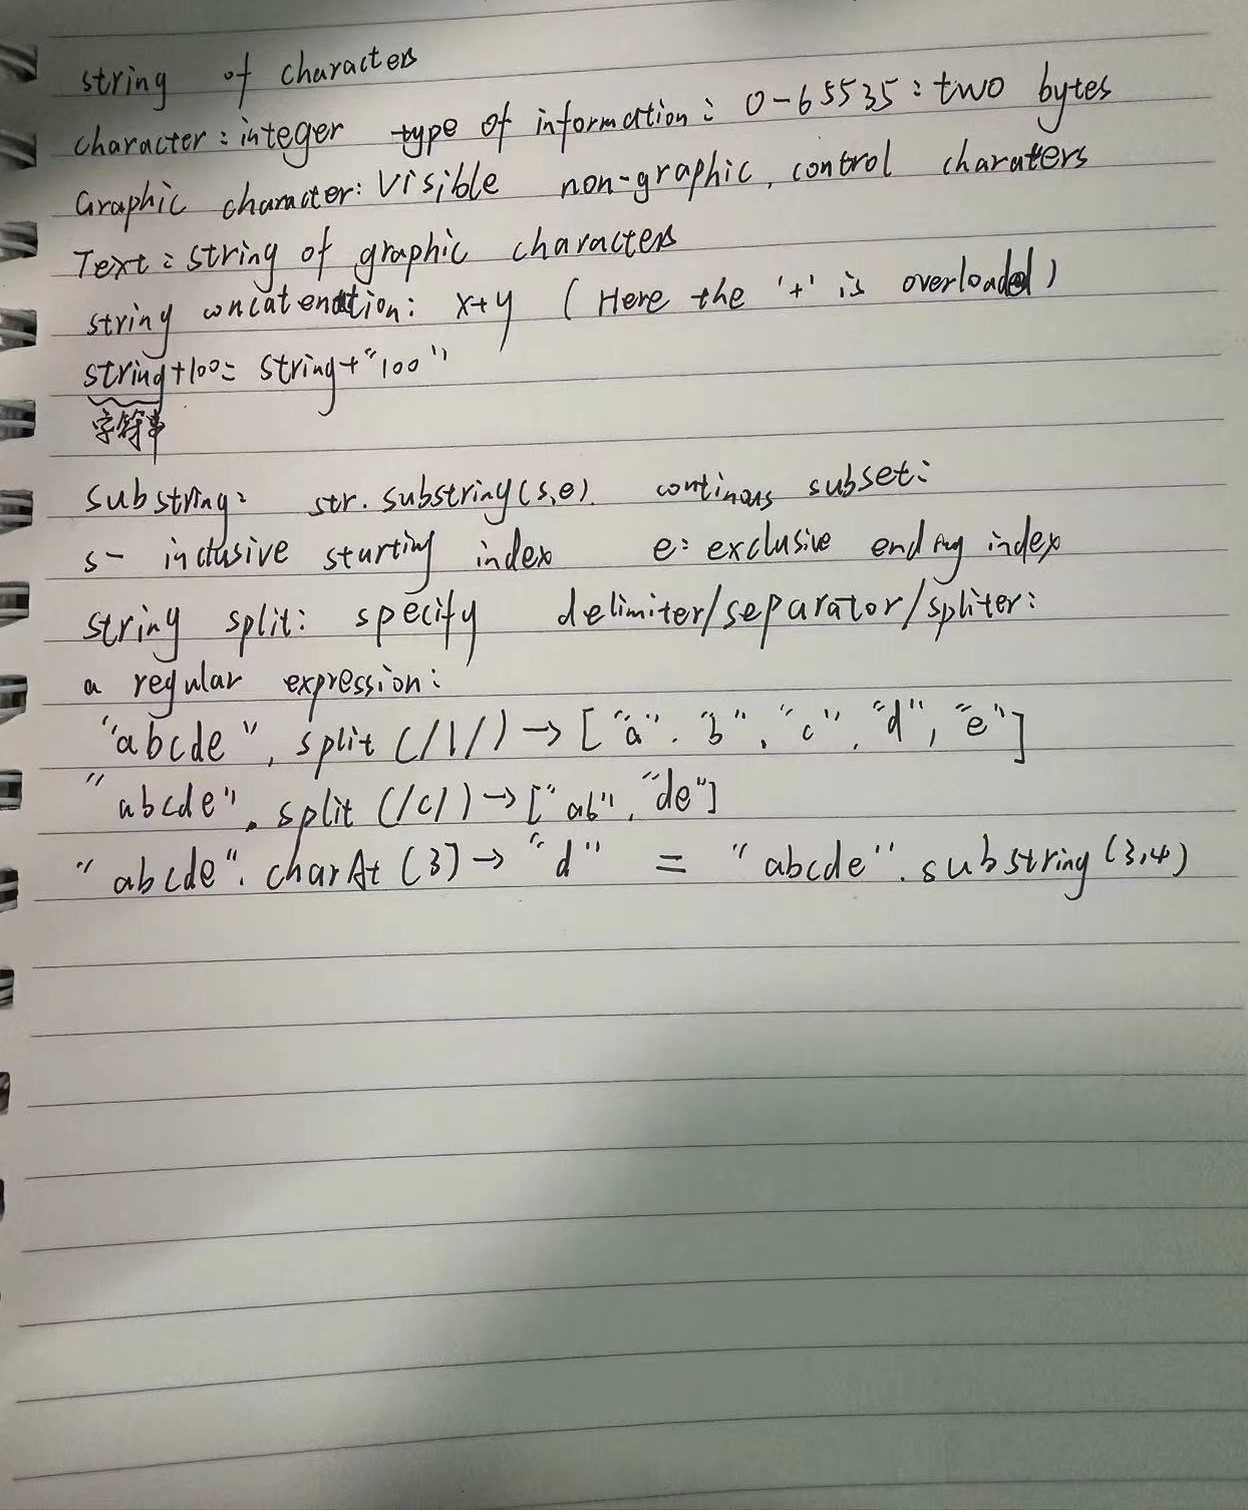 string of characters
character: integer type of information: 0-65535: two bytes
Graphic character: Visible non-graphic, control charaters
Text: string of graphic characters
string concatenation: x+y (Here the '+' is overloaded)
string+100= string+"100"
字符串
substring: str.substring(s,e). continous subset:
s- inclusive starting index e: exclusive ending index
string split: specify delimiter/separator/spliter:
a regular expression:
"abcde", split (/1/)→["a", "b", "c", "d", "e"]
"abcde". split (/c/)→["ab", "de"]
"abcde". charAt (3)→"d" = "abcde".substring(3,4)